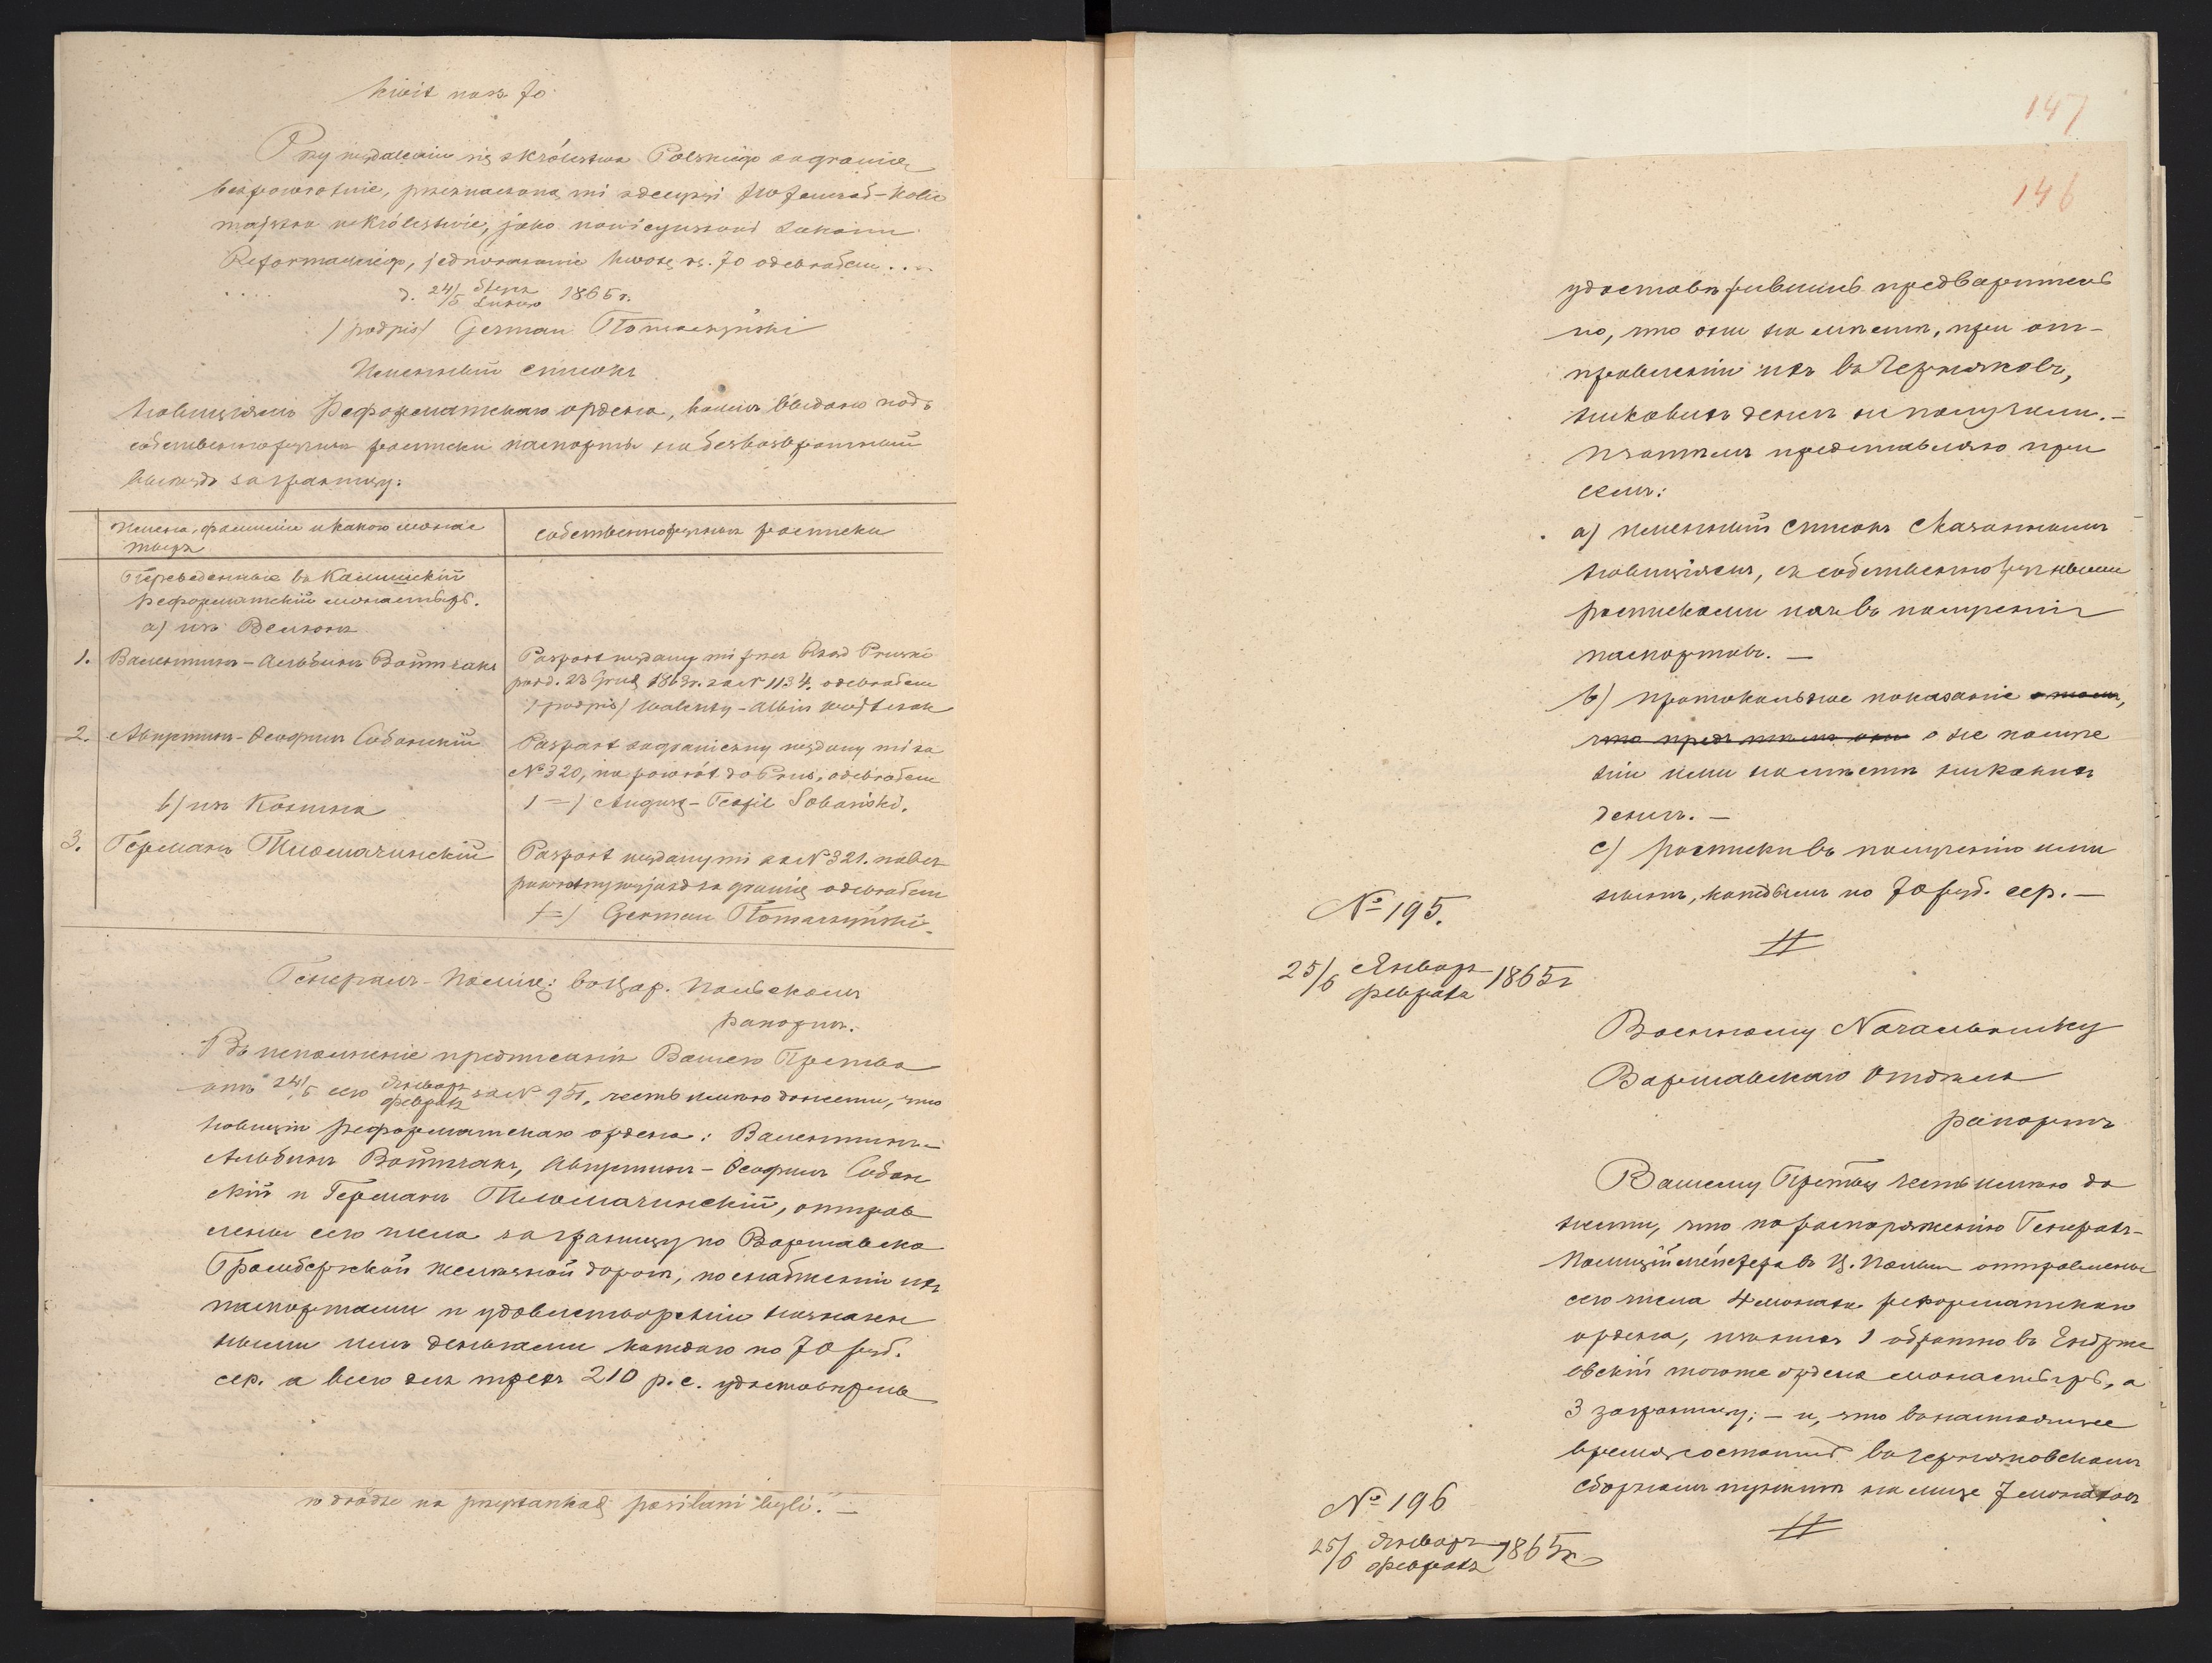 kwit na rs. 70
Przy wydaleniu się z Królestwa Polskiego za granicę
bezpowrotnie, przeznaczoną mi z decyzji
w Królestwie, jako nowicyuszowi Zakonu
Reformackiego, jednorazowie kwotę rs. 70 odebrałem....
d. 24/5 Stycz/Lutego 1865 r.
/podpis/ German Tłomaczyński
Именный списокъ
новиціямъ Реформатскаго ордена, коимъ выданы подъ
собственноручныя росписки паспорты на безвозвратный
выѣздъ заграницу:
Имена, фамиліи и какого монас
тыря
собственноручныя росписки
Переведенные въ Калишскій
реформатскій монастырь.
а) изъ Велюня
1. Валентинъ-Альбинъ Войтчакъ
Paszport wydany mi przez Rząd Pruski
pod d. 23 Grud 1863 r. za N 1134. odebrałem
/podpis/ Walenty-Albin Wojtczak
2. Августинъ-Ѳеофилъ Собанскій
Paszport zagraniczny wydany mi za
№ 320, na powrót do Prus, odebrałem
/=/ August-Teofil Sobański.
b) изъ Конина
3. Германъ Тлюмачинскій
Paszport wydany mi za N 321. na bez
powrotny wyjazd za granicę odebrałem
/=/ German Tłomaczyński.
Генералъ-Полиц: въ Цар. Польскомъ
рапортъ.
Въ исполненіе предписанія Вашего Прства
отъ 24/5 сего Января/Февраля за N 951, честь имѣю донести, что
новиціи реформатскаго ордена: Валентинъ-
Альбинъ Войтчакъ, Августинъ-Ѳеофилъ Собан
скій и Германъ Тлюмачинскій, отправ
лены сего числа заграницу по Варшавско
Бромбергской желѣзной дорогѣ, по снабженіи ихъ
паспортами и удовлетвореніи назначен
ными имъ деньгами каждаго по 70 руб.
сер. а всего всѣхъ трехъ 210 р. с. удостовѣрив
w drodze na przystankach posilani byli." —
147
146
удостовѣрившись предварительь
но, что они на мѣстѣ, при от-
правленіи ихъ въ Черняковъ,
никакихъ денегъ не получали.—
При этомъ представляю при
семъ:
а) именный списокъ сказаннымъ
новиціямъ, съ собственноручными
росписками ихъ въ полученіи
паспортовъ.—
b) протокольное показаніе о томъ,
о не получе
ніи ими на мѣстѣ никакихъ
денегъ.—
c) росписки въ полученіи ими
каждымъ по 70 руб. сер.—
№ 195.
25/6 Января/Февраля 1865 г
Военному Начальнику
Варшавскаго Отдѣла
рапортъ
Вашему Прству честь имѣю до
нести, что по распоряженію Генералъ-
Полиціймейстера въ Ц. Польш отправлены
сего числа 4 монаха реформатскаго
ордена, изъ нихъ 1 обратно въ Ендрже
евскій тогоже ордена монастырь, а
3 заграницу;— и, что въ настоящее
время состоитъ въ Черняковскомъ
сборномъ пунктѣ на лицо 7 монаховъ
№ 196
25/6 Января/Февраля 1865 г